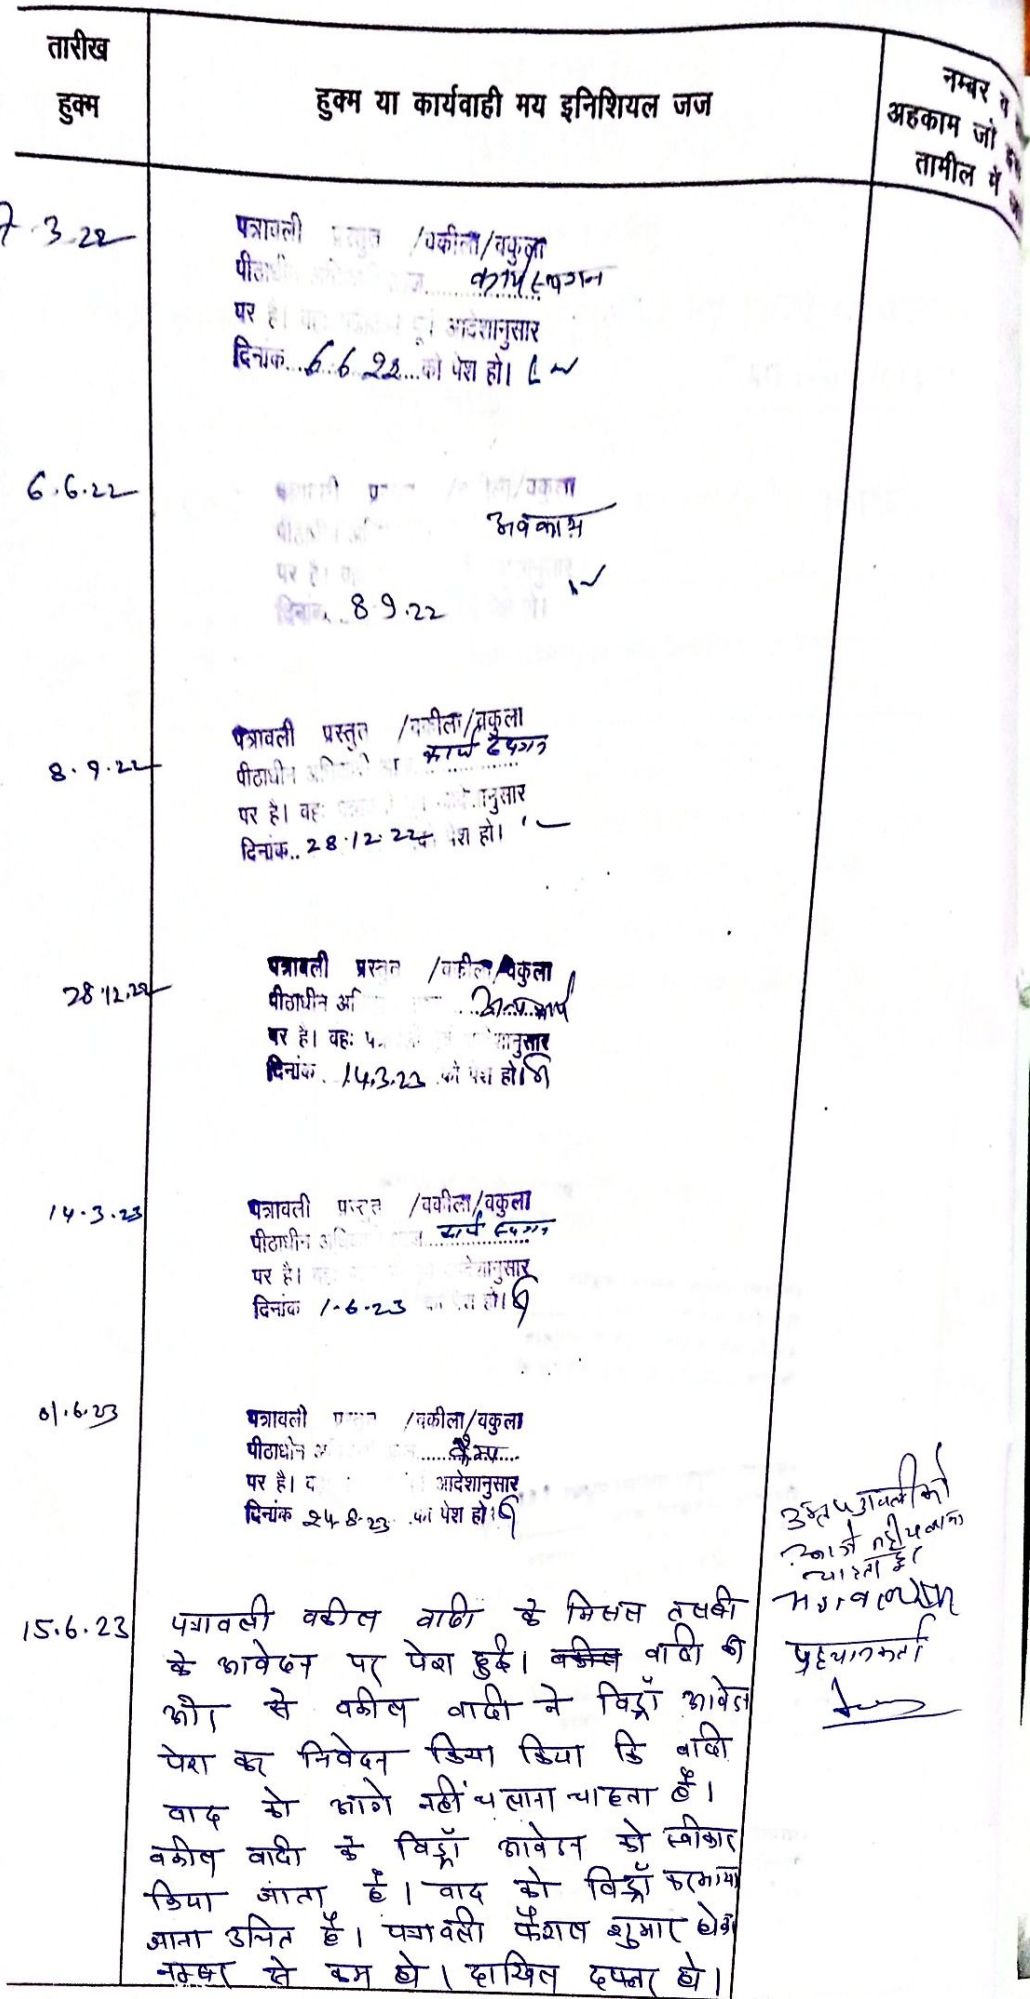 तारीख
हुक्म
हुक्म या कार्यवाही मय इनिशियल जज
नम्बर व
अहकाम जो
तामील में
3.22
पत्रावली प्रस्तुत /वकील/वकुला
कार्य स्थगन
पर है। आदेशानुसार
दिनांक 6.6.22 को पेश हो।
6.6.22
/वकुला
अवकाश
पर है।
दिनांक. 8.9.22
8.9.22
पत्रावली प्रस्तुत /वकील/वकुला
पीठाधीन कार्य स्थगन
पर है। वह:
दिनांक.. 28.12.22 पेश हो।
28.12.22
पत्रावली प्रस्तुत /वकील/वकुला
पीठाधीन अन्य कार्य
पर है। वह:
दिनांक 14.3.23 को पेश हो।
14.3.23
पत्रावली प्रस्तुत /वकील/वकुला
पीठाधीन कार्य स्थगन
पर है।
दिनांक 1.6.23 हो।
01.6.23
पत्रावली /वकील/वकुला
पीठाधीन कैम्प
पर है। आदेशानुसार
दिनांक 24.8.23 को पेश हो।
उक्त पत्रावली को
आगे नहीं चलाना
चाहता हूं
पहचानकर्ता
15.6.23
पत्रावली वकील वादी के मिसल तलबी
के आवेदन पर पेश हुई। वकील वादी की
ओर से वकील वादी ने विड्रॉ आवेदन
पेश कर निवेदन किया किया कि वादी
वाद को आगे नहीं चलाना चाहता है।
वकील वादी के विड्रॉ आवेदन को स्वीकार
किया जाता है। वाद को विड्रॉ फरमाया
जाना उचित है। पत्रावली फैशल शुमार होकर
नम्बर से कम हो। दाखिल दफ्तर हो।